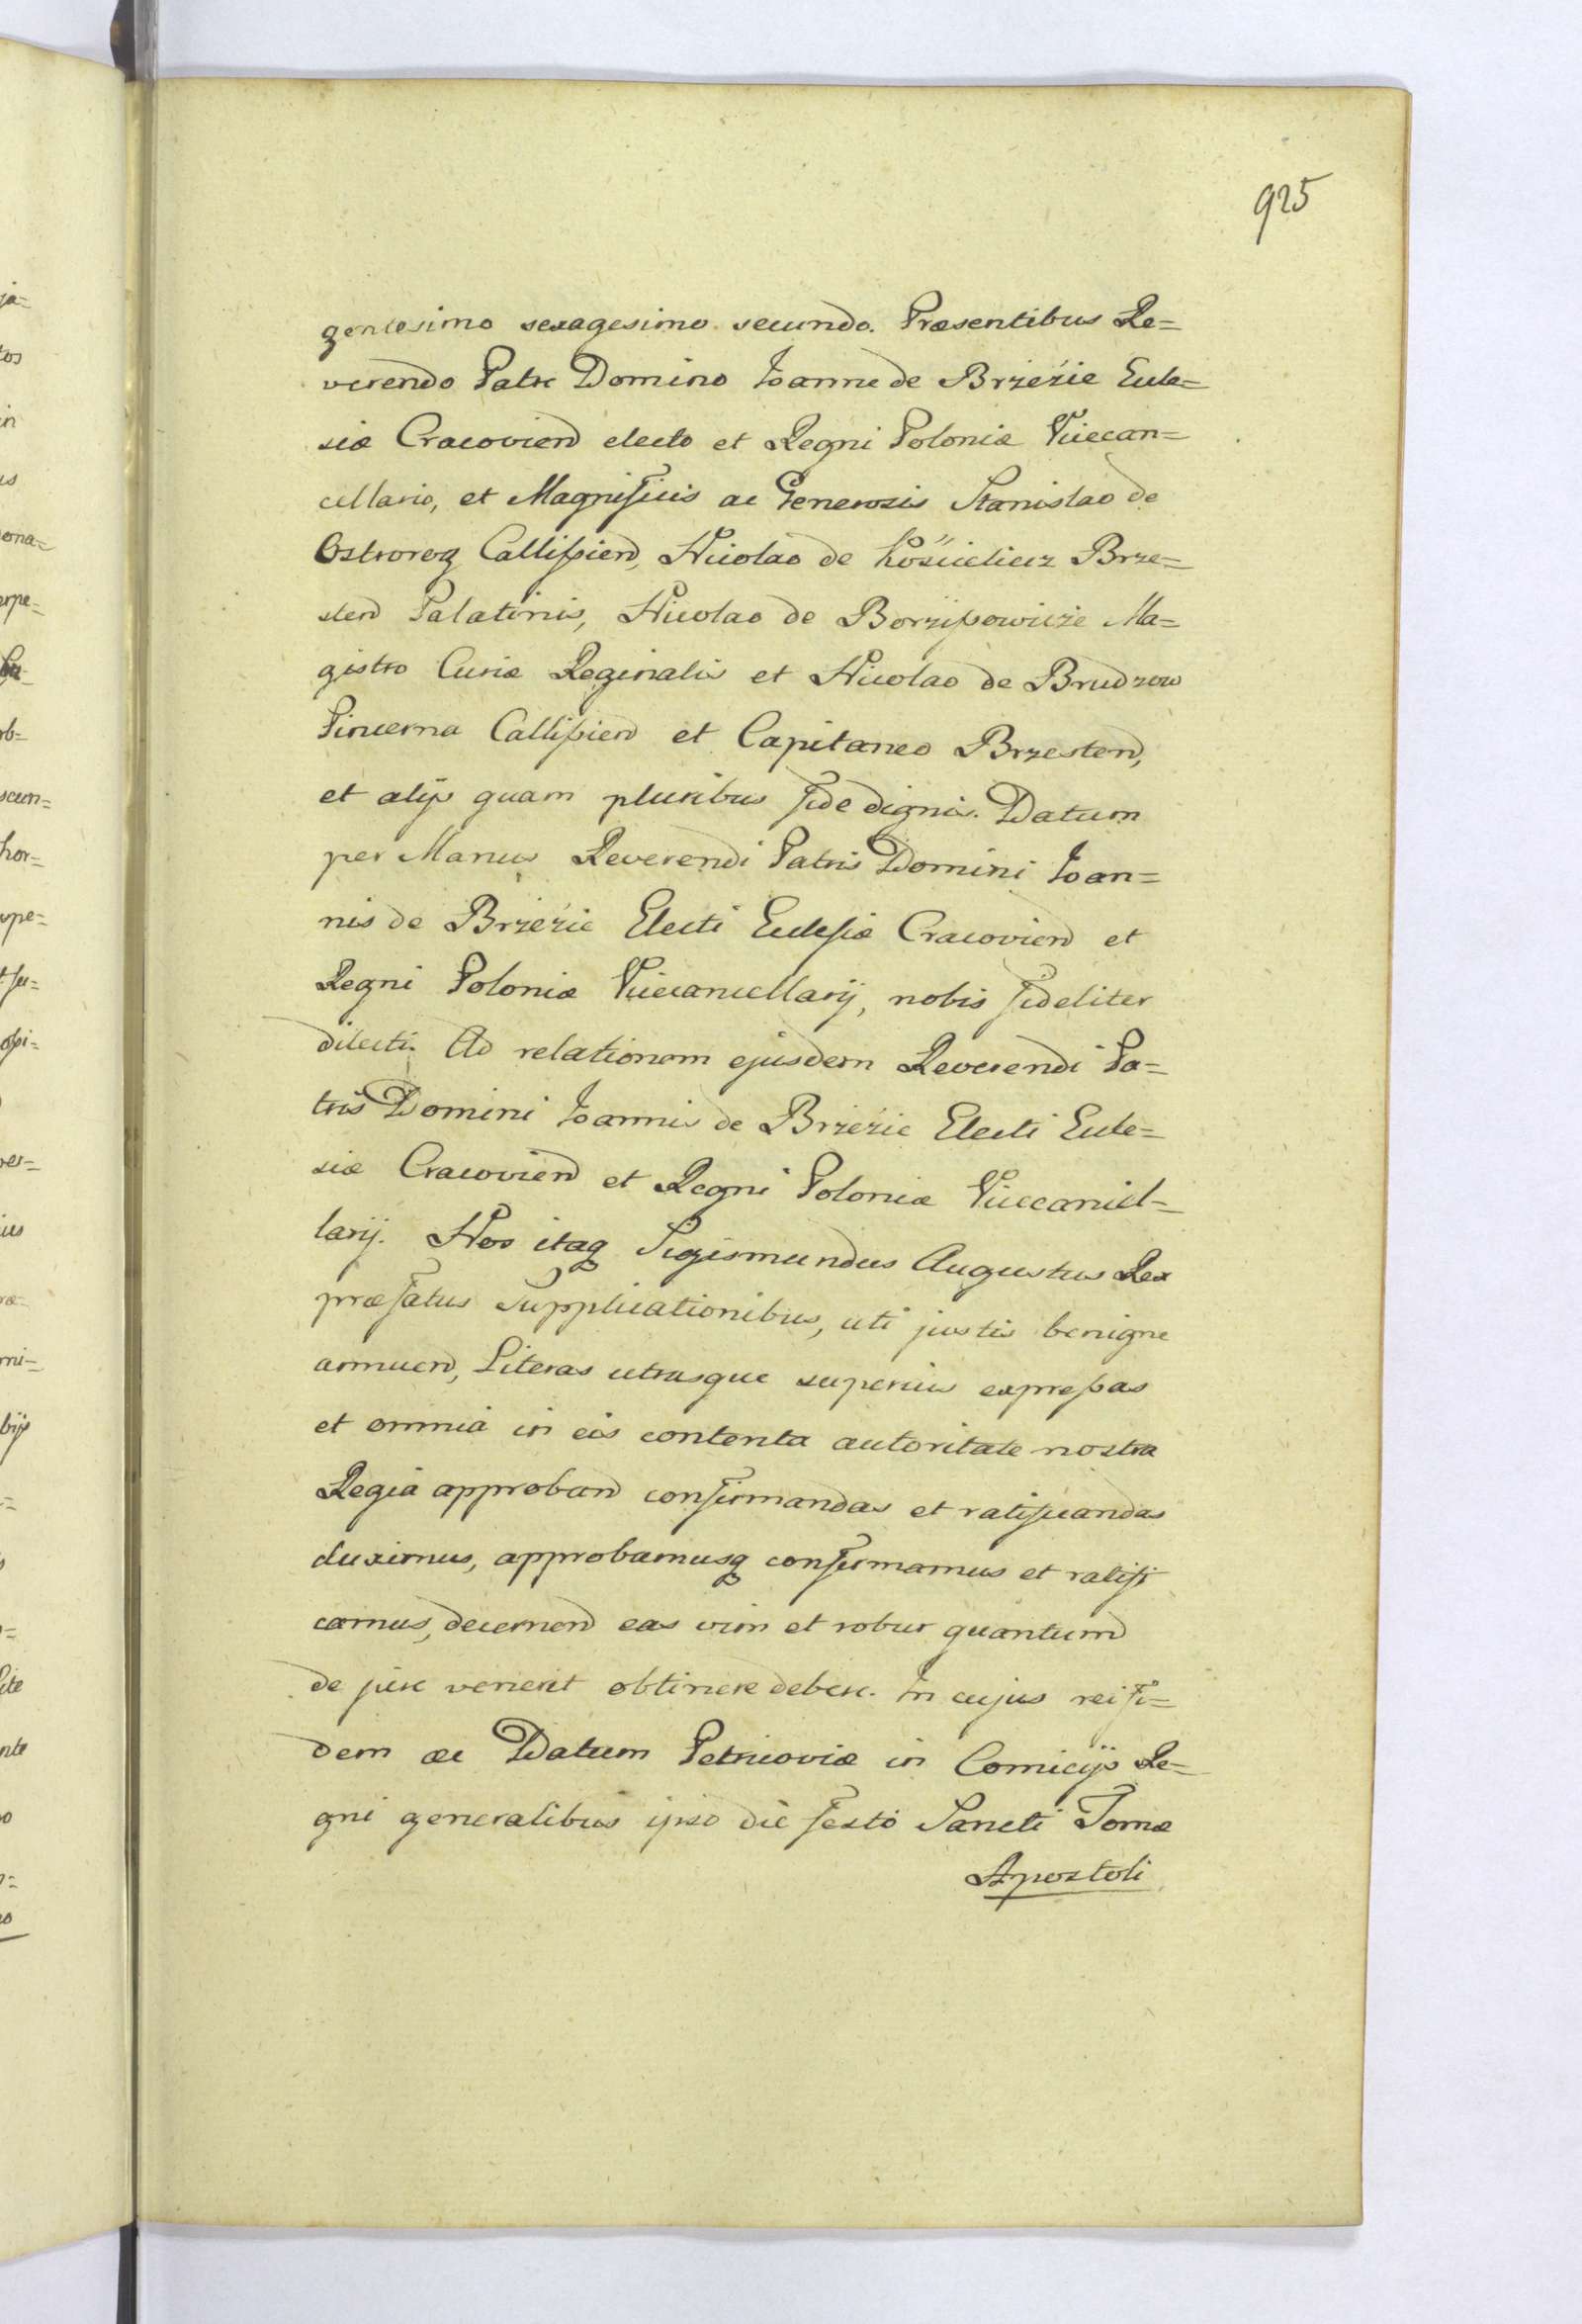 925
gentesimo sexagesimo secundo. Præsentibus Re=
verendo Patre Domino Ioanne de Brzezie Eccle=
siæ Cracovien electo et Regni Poloniæ Vicecan=
cellario, et Magnificis ac Generosis Stanislao de
Ostrorog Callissien, Nicolao de Kościelicz Brze=
sten Palatinis, Nicolao de Borzissowicze Ma=
gistro Curiæ Reginalis et Nicolao de Brudzow
Pincerna Callissien et Capitaneo Brzesten,
et alijs quam pluribus fide dignis. Datum
per Manus Reverendi Patris Domini Ioan=
nis de Brzezie Electi Ecclesiæ Cracovien et
Regni Poloniæ Vicecancellarij, nobis fideliter
dilecti. Ad relationem ejusdem Reverendi Pa=
tris Domini Ioannis de Brzezie Electi Eccle=
siæ Cracovien et Regni Poloniæ Vicecancel=
larij. Nos itaq Sigismundus Augustus Rex
præfatus Supplicationibus, uti justis benigne
annuen, Literas utrasque superius expressas
et omnia in eis contenta autoritate nostra
Regia approban confirmandas et ratificandas
duximus, approbamusq confirmamus et ratifi
camus, decernen eas vim et robur quantum
de jure venerit obtinere debere. In cujus rei fi=
dem &c Datum Petricoviæ in Comicijs Re=
gni generalibus ipso die festo Sancti Tomæ
Apostoli
ja=
tos
in
us
ona=
erpe=
rb=
scun=
hor=
upe=
ver=
ius
ræ=
mi=
bijs
nte